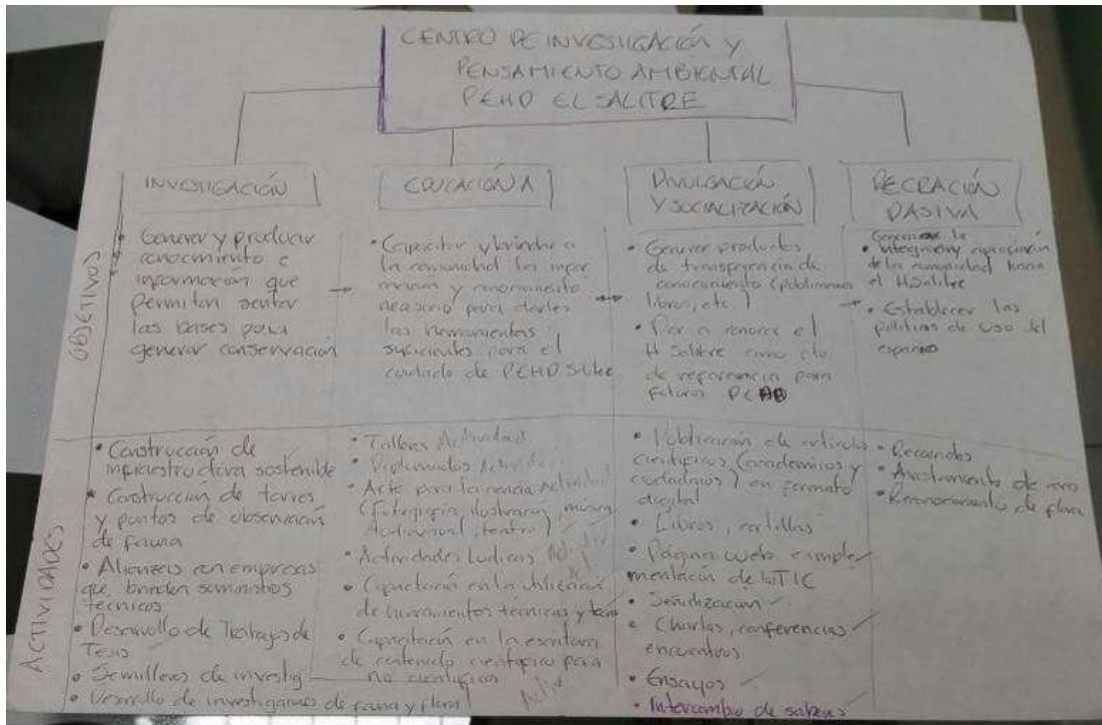 CENTRO DE INVESTIGACIÓN Y
PENSAMIENTO AMBIENTAL
PEHD EL SALITRE
INVESTIGACIÓN
EDUCACIÓN A
DIVULGACIÓN
Y SOCIALIZACIÓN
RECREACIÓN
PASIVA
OBJETIVOS
• Generar y producir
conocimiento e
información que
permitan sentar
las bases para
generar conservación
• Capacitar y brindar a
la comunidad la
y conocimiento
necesario para darles
las herramientas
suficientes para el
cuidado de PEHD
• Generar productos
de transferencia de
conocimiento
libros, etc)
• Dar a conocer el
H Salitre como
de referencia para
futuros
Generar la
• integración y apropiación
de la comunidad hacia
el HSalitre
• Establecer las
políticas de uso del
espacio
ACTIVIDADES
• Construcción de
infraestructura sostenible
• Construcción de torres
y puntos de observación
de fauna
• Alianzas con empresas
que brinden suministros
técnicos
• Desarrollo de Trabajos de
Tesis
• Semilleros de investig
• Desarrollo de investigaciones de fauna y flora
• Talleres Actividad
• Diplomados Actividad
• Arte para la ciencia Actividad
(fotografía, ilustración,
audiovisual, teatro)
• Actividades Ludicas
• Capacitación en la utilización
de herramientas técnicas y
• Capacitación en la escritura
de contenido científico para
no científicos
• Publicación de artículos
científicos (académicos y
) en formato
digital
• Libros, cartillas
• Página web e imple-
mentación de las TIC
• Señalización
• Charlas, conferencias
encuentros
• Ensayos
• Intercambio de saberes
• Recorridos
• Avistamiento de aves
• Reconocimiento de flora